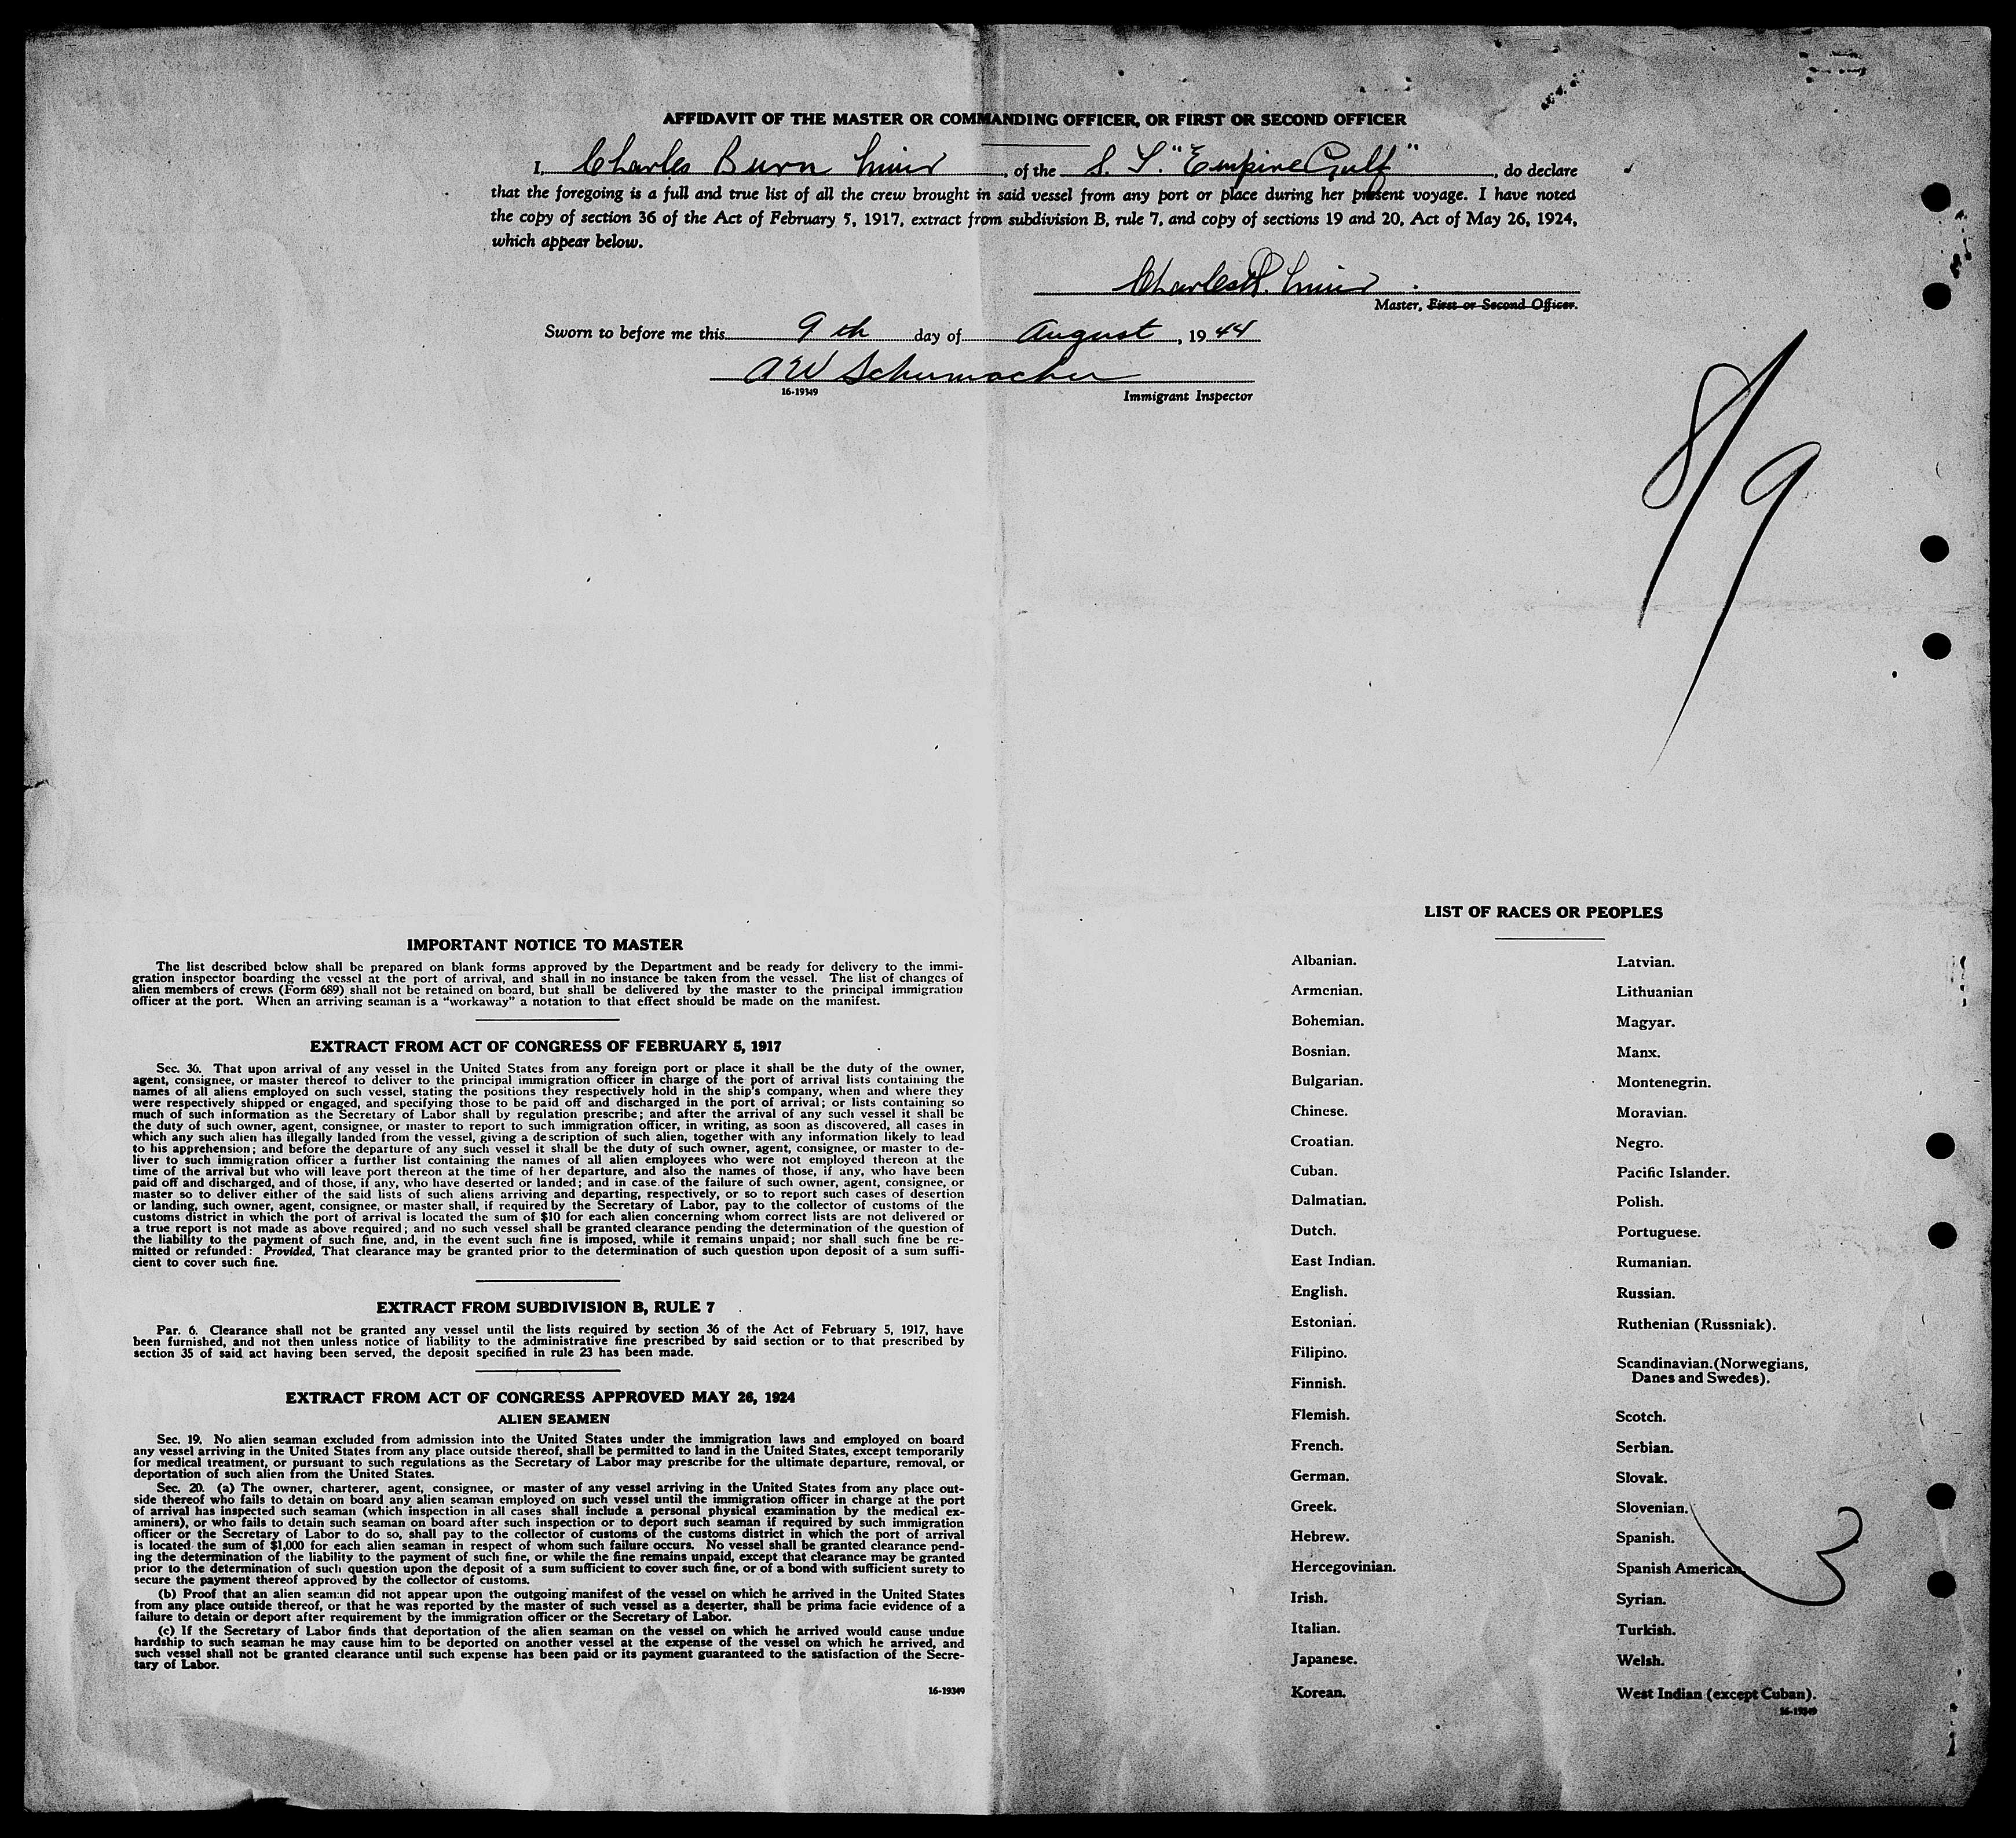 AFFIDAVIT OF THE MASTER OR COMMANDING OFFICER, OR FIRST OR SECOND OFFICER
I, Charles Burn Muir, of the S. S. "Empire Gulf", do declare
that the foregoing is a full and true list of all the crew brought in said vessel from any port or place during her present voyage. I have noted
the copy of section 36 of the Act of February 5, 1917, extract from subdivision B, rule 7, and copy of sections 19 and 20, Act of May 26, 1924,
which appear below.
Charles B. Muir
Master, First or Second Officer.
Sworn to before me this 9th day of August, 1944
A W Schumacher
16-19349
Immigrant Inspector
8/9
IMPORTANT NOTICE TO MASTER
The list described below shall be prepared on blank forms approved by the Department and be ready for delivery to the immi-
gration inspector boarding the vessel at the port of arrival, and shall in no instance be taken from the vessel. The list of changes of
alien members of crews (Form 689) shall not be retained on board, but shall be delivered by the master to the principal immigration
officer at the port. When an arriving seaman is a "workaway" a notation to that effect should be made on the manifest.
EXTRACT FROM ACT OF CONGRESS OF FEBRUARY 5, 1917
Sec. 36. That upon arrival of any vessel in the United States from any foreign port or place it shall be the duty of the owner,
agent, consignee, or master thereof to deliver to the principal immigration officer in charge of the port of arrival lists containing the
names of all aliens employed on such vessel, stating the positions they respectively hold in the ship's company, when and where they
were respectively shipped or engaged, and specifying those to be paid off and discharged in the port of arrival; or lists containing so
much of such information as the Secretary of Labor shall by regulation prescribe; and after the arrival of any such vessel it shall be
the duty of such owner, agent, consignee, or master to report to such immigration officer, in writing, as soon as discovered, all cases in
which any such alien has illegally landed from the vessel, giving a description of such alien, together with any information likely to lead
to his apprehension; and before the departure of any such vessel it shall be the duty of such owner, agent, consignee, or master to de-
liver to such immigration officer a further list containing the names of all alien employees who were not employed thereon at the
time of the arrival but who will leave port thereon at the time of her departure, and also the names of those, if any, who have been
paid off and discharged, and of those, if any, who have deserted or landed; and in case of the failure of such owner, agent, consignee, or
master so to deliver either of the said lists of such aliens arriving and departing, respectively, or so to report such cases of desertion
or landing, such owner, agent, consignee, or master shall, if required by the Secretary of Labor, pay to the collector of customs of the
customs district in which the port of arrival is located the sum of $10 for each alien concerning whom correct lists are not delivered or
a true report is not made as above required; and no such vessel shall be granted clearance pending the determination of the question of
the liability to the payment of such fine, and, in the event such fine is imposed, while it remains unpaid; nor shall such fine be re-
mitted or refunded: Provided, That clearance may be granted prior to the determination of such question upon deposit of a sum suffi-
cient to cover such fine.
EXTRACT FROM SUBDIVISION B, RULE 7
Par. 6. Clearance shall not be granted any vessel until the lists required by section 36 of the Act of February 5, 1917, have
been furnished, and not then unless notice of liability to the administrative fine prescribed by said section or to that prescribed by
section 35 of said act having been served, the deposit specified in rule 23 has been made.
EXTRACT FROM ACT OF CONGRESS APPROVED MAY 26, 1924
ALIEN SEAMEN
Sec. 19. No alien seaman excluded from admission into the United States under the immigration laws and employed on board
any vessel arriving in the United States from any place outside thereof, shall be permitted to land in the United States, except temporarily
for medical treatment, or pursuant to such regulations as the Secretary of Labor may prescribe for the ultimate departure, removal, or
deportation of such alien from the United States.
Sec. 20. (a) The owner, charterer, agent, consignee, or master of any vessel arriving in the United States from any place out-
side thereof who fails to detain on board any alien seaman employed on such vessel until the immigration officer in charge at the port
of arrival has inspected such seaman (which inspection in all cases shall include a personal physical examination by the medical ex-
aminers), or who fails to detain such seaman on board after such inspection or to deport such seaman if required by such immigration
officer or the Secretary of Labor to do so, shall pay to the collector of customs of the customs district in which the port of arrival
is located the sum of $1,000 for each alien seaman in respect of whom such failure occurs. No vessel shall be granted clearance pend-
ing the determination of the liability to the payment of such fine, or while the fine remains unpaid, except that clearance may be granted
prior to the determination of such question upon the deposit of a sum sufficient to cover such fine, or of a bond with sufficient surety to
secure the payment thereof approved by the collector of customs.
(b) Proof that an alien seaman did not appear upon the outgoing manifest of the vessel on which he arrived in the United States
from any place outside thereof, or that he was reported by the master of such vessel as a deserter, shall be prima facie evidence of a
failure to detain or deport after requirement by the immigration officer or the Secretary of Labor.
(c) If the Secretary of Labor finds that deportation of the alien seaman on the vessel on which he arrived would cause undue
hardship to such seaman he may cause him to be deported on another vessel at the expense of the vessel on which he arrived, and
such vessel shall not be granted clearance until such expense has been paid or its payment guaranteed to the satisfaction of the Secre-
tary of Labor.
16-19349
LIST OF RACES OR PEOPLES
Albanian.
Armenian.
Bohemian.
Bosnian.
Bulgarian.
Chinese.
Croatian.
Cuban.
Dalmatian.
Dutch.
East Indian.
English.
Estonian.
Filipino.
Finnish.
Flemish.
French.
German.
Greek.
Hebrew.
Hercegovinian.
Irish.
Italian.
Japanese.
Korean.
Latvian.
Lithuanian
Magyar.
Manx.
Montenegrin.
Moravian.
Negro.
Pacific Islander.
Polish.
Portuguese.
Rumanian.
Russian.
Ruthenian (Russniak).
Scandinavian.(Norwegians,
Danes and Swedes).
Scotch.
Serbian.
Slovak.
Slovenian.
Spanish.
Spanish American.
Syrian.
Turkish.
Welsh.
West Indian (except Cuban).
16-19349
3